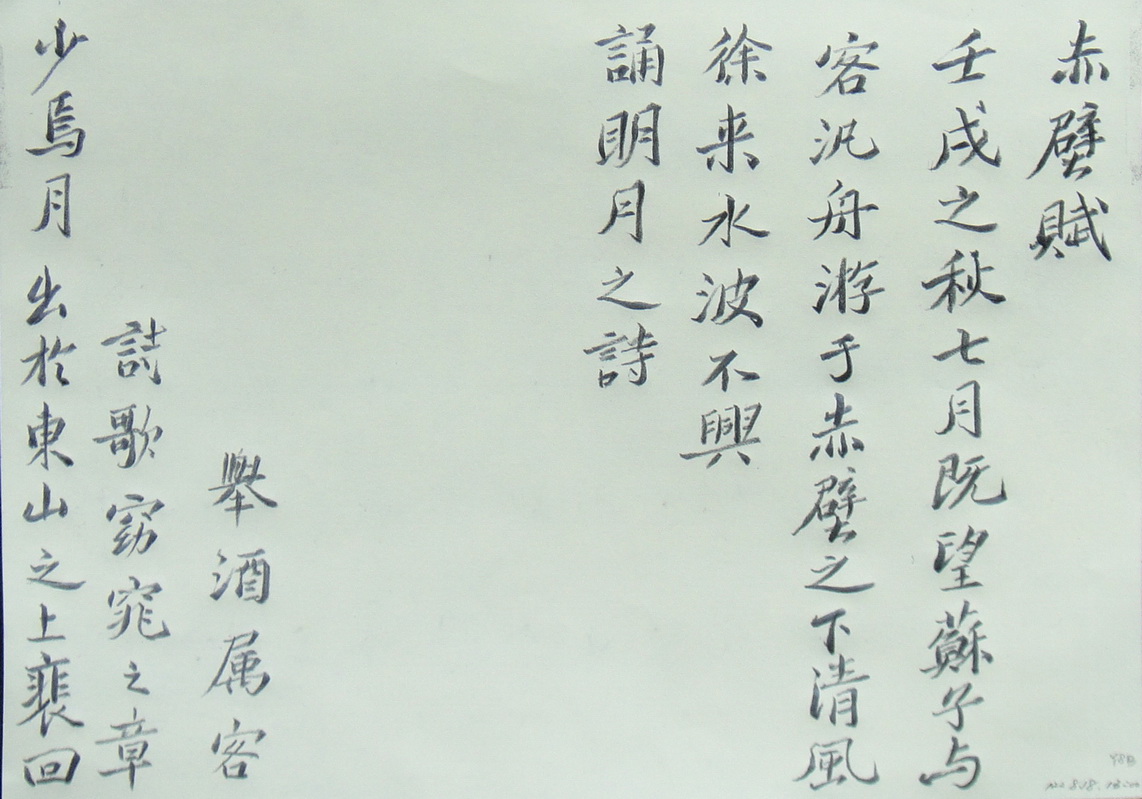 赤壁賦
壬戌之秋七月既望蘇子与
客汎舟游于赤壁之下清風
徐来水波不興
誦明月之詩
舉酒属客
歌窈窕之章
少焉月出於東山之上裴回